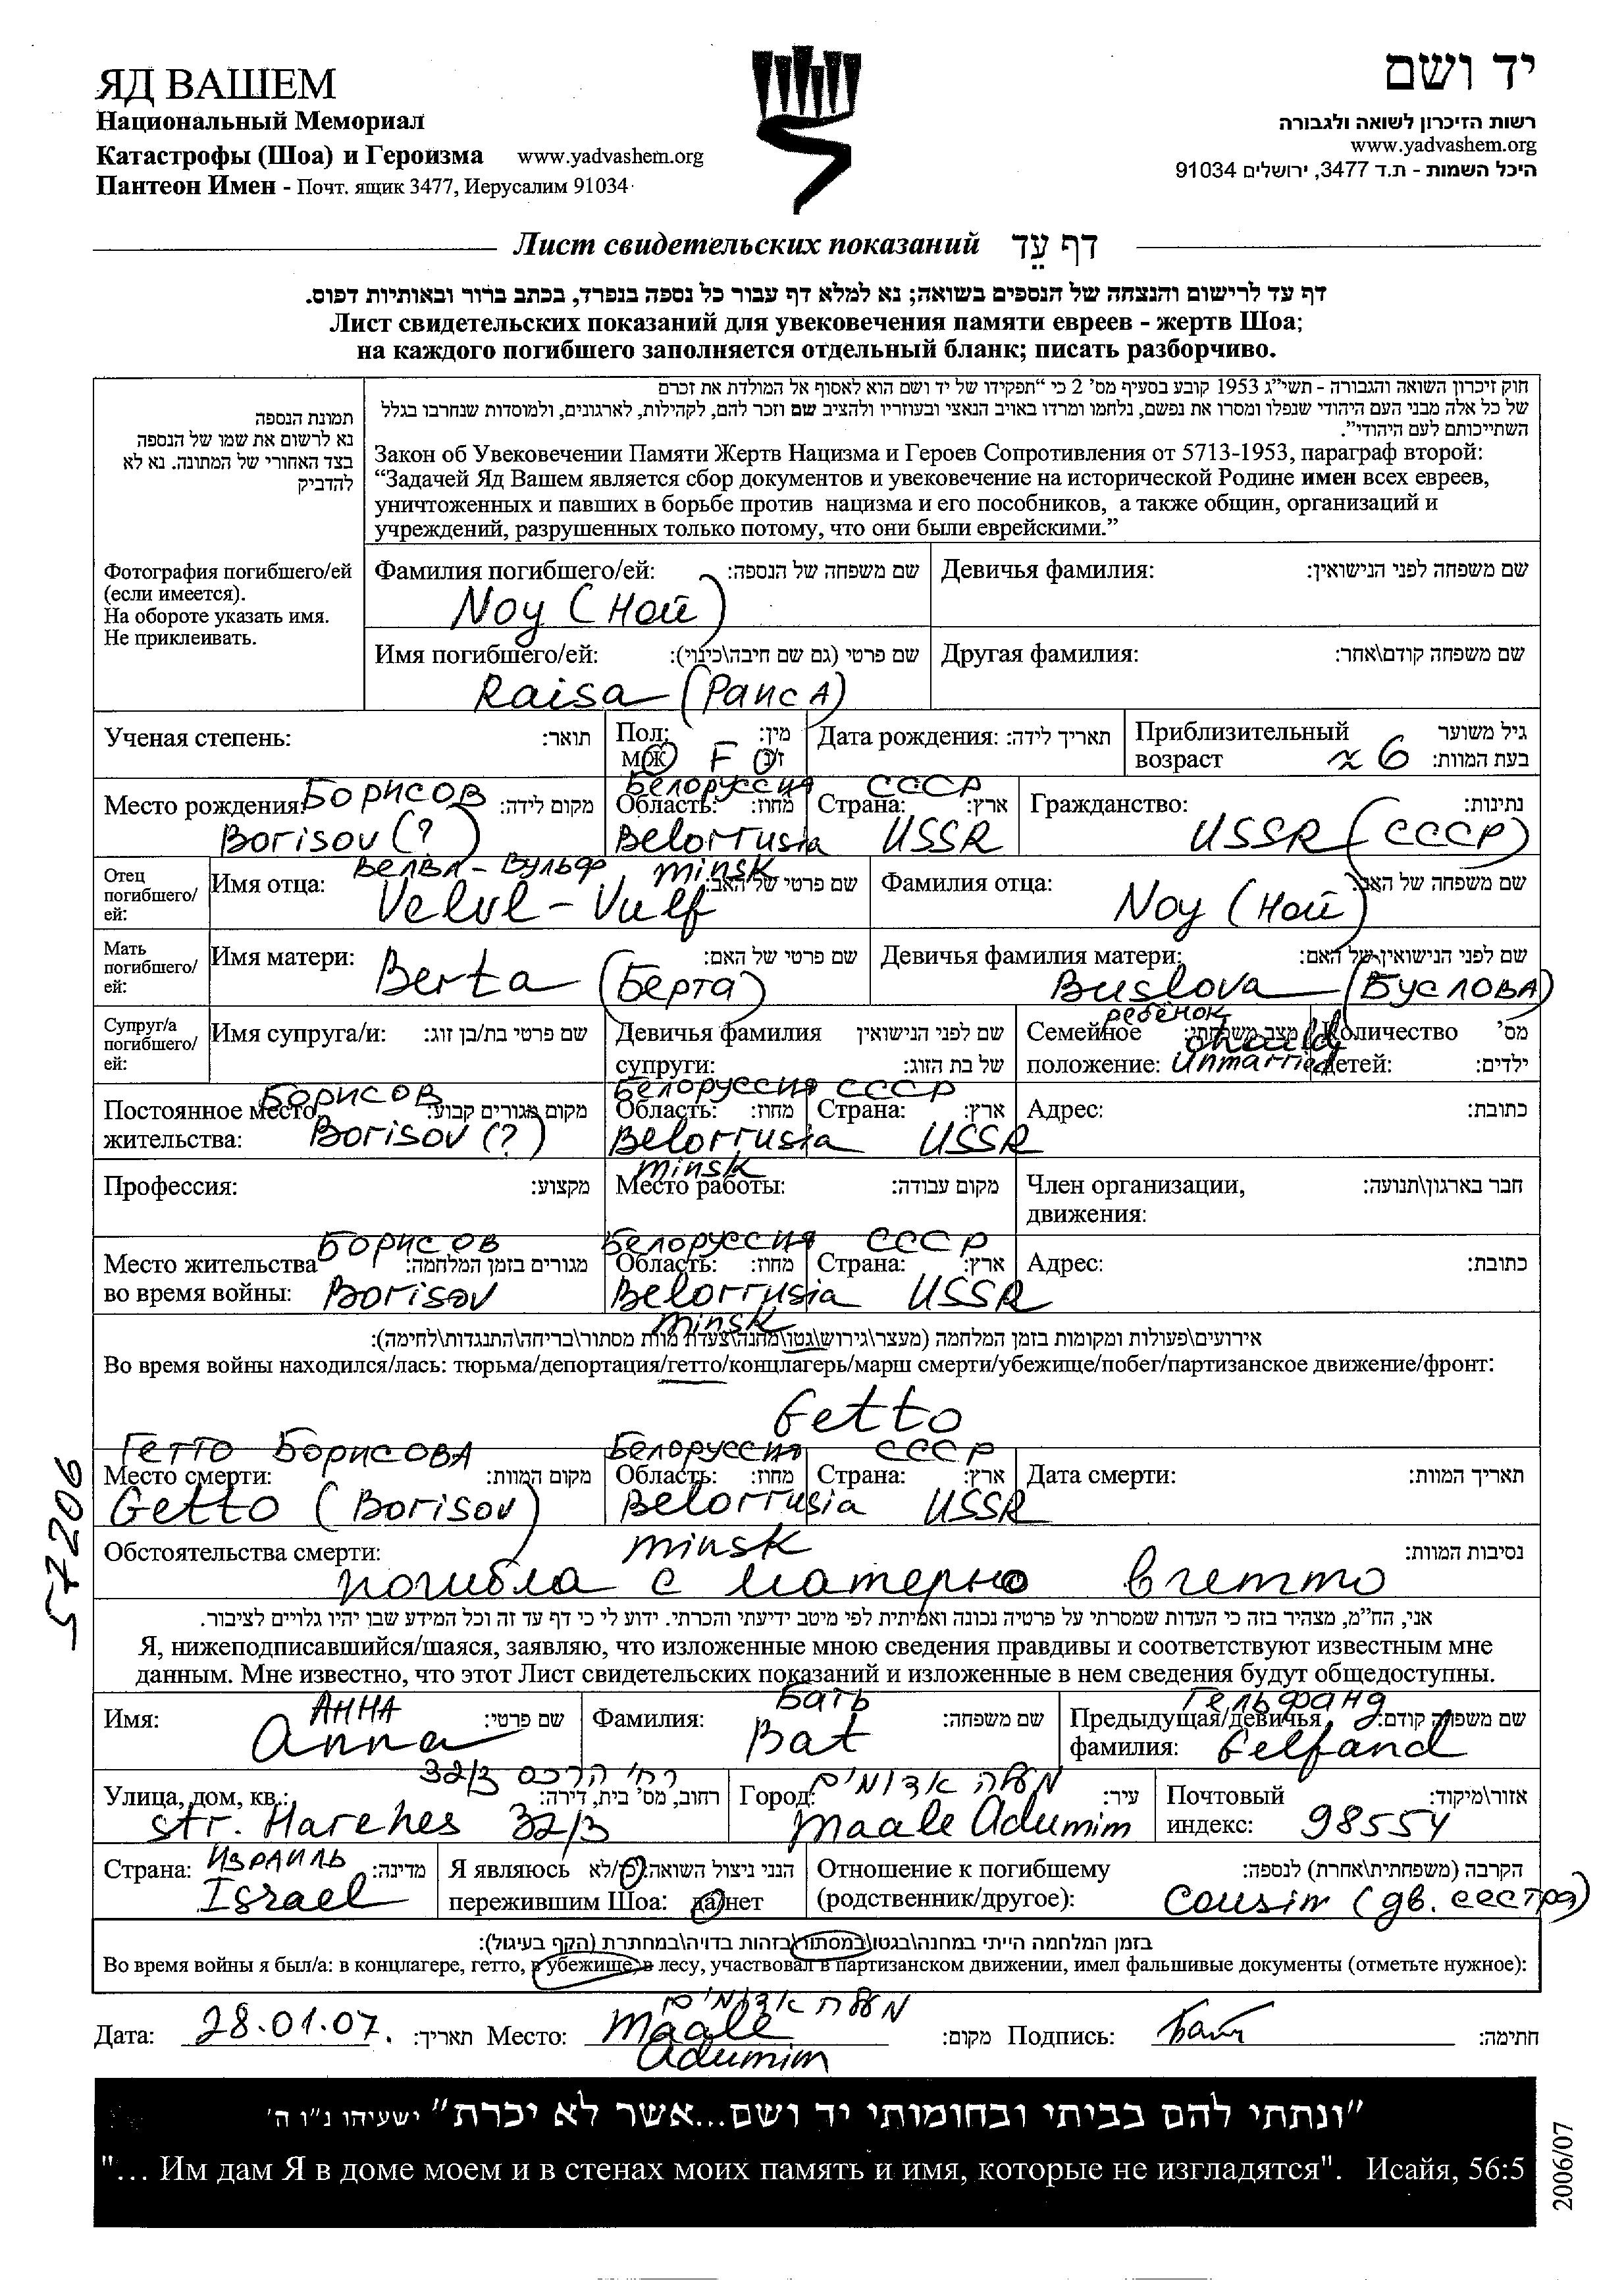 ЯД ВАШЕМ
Национальный Мемориал
Катастрофы (Шоа) и Героизма www.yadvashem.org
Пантеон Имен - Почт. ящик 3477, Иерусалим 91034
יד ושם
רשות הזיכרון לשואה ולגבורה
www.yadvashem.org
היכל השמות - ת.ד 3477, ירושלים 91034
Лист свидетельских показаний דף עֵד
דף עד לרישום והנצחה של הנספים בשואה; נא למלא דף עבור כל נספה בנפרד, בכתב ברור ובאותיות דפוס.
Лист свидетельских показаний для увековечения памяти евреев - жертв Шоа;
на каждого погибшего заполняется отдельный бланк; писать разборчиво.
תמונת הנספה
נא לרשום את שמו של הנספה
בצד האחורי של המתונה. נא לא
להדביק
Фотография погибшего/ей
(если имеется).
На обороте указать имя.
Не приклеивать.
חוק זיכרון השואה והגבורה - תשי"ג 1953 קובע בסעיף מס' 2 כי "תפקידו של יד ושם הוא לאסוף אל המולדת את זכרם
של כל אלה מבני העם היהודי שנפלו ומסרו את נפשם, נלחמו ומרדו באויב הנאצי ובעוזריו ולהציב שם וזכר להם, לקהילות, לארגונים, ולמוסדות שנחרבו בגלל
השתייכותם לעם היהודי".
Закон об Увековечении Памяти Жертв Нацизма и Героев Сопротивления от 5713-1953, параграф второй:
“Задачей Яд Вашем является сбор документов и увековечение на исторической Родине имен всех евреев,
уничтоженных и павших в борьбе против нацизма и его пособников, а также общин, организаций и
учреждений, разрушенных только потому, что они были еврейскими.”
Фамилия погибшего/ей: שם משפחה של הנספה:
Noy (Ной)
Девичья фамилия: שם משפחה לפני הנישואין:
Имя погибшего/ей: שם פרטי (גם שם חיבה\כינוי):
Raisa (РаисА)
Другая фамилия: שם משפחה קודם\אחר:
Ученая степень: תואר:
Пол: מין:
м/ж F ז/נ
Дата рождения: תאריך לידה:
Приблизительный גיל משוער
возраст ≈ 6 בעת המוות:
Место рождения: Борисов מקום לידה:
Borisov (?)
Белоруссия
Область: מחוז:
Belorrusia
minsk
СССР
Страна: ארץ:
USSR
Гражданство: נתינות:
USSR (СССР)
Отец
погибшего/
ей:
Велвл - Вульф
Имя отца: שם פרטי של האב:
Velvl - Vulf
Фамилия отца: שם משפחה של האב:
Noy (Ной)
Мать
погибшего/
ей:
Имя матери: שם פרטי של האם:
Berta (Берта)
Девичья фамилия матери: שם לפני הנישואין של האם:
Buslova (БУСЛОВА)
Супруг/а
погибшего/
ей:
Имя супруга/и: שם פרטי בת/בן זוג:
Девичья фамилия שם לפני הנישואין
супруги: של בת הזוג:
ребёнок
Семейное מצב משפחתי: chaild
положение: Unmarried
Количество מס'
детей: ילדים:
Борисов
Постоянное место מקום מגורים קבוע:
жительства: Borisov (?)
Белоруссия СССР
Область: מחוז: Страна: ארץ:
Belorrusia USSR
minsk
Адрес: כתובת:
Профессия: מקצוע:
Место работы: מקום עבודה:
Член организации, חבר בארגון\תנועה:
движения:
Борисов
Место жительства מגורים בזמן המלחמה:
во время войны: Borisov
Белоруссия СССР
Область: מחוז: Страна: ארץ:
Belorrusia USSR
minsk
Адрес: כתובת:
אירועים\פעולות ומקומות בזמן המלחמה (מעצר\גירוש\גטו\מחנה\צעדת מוות מסתור\בריחה\התנגדות\לחימה):
Во время войны находился/лась: тюрьма/депортация/гетто/концлагерь/марш смерти/убежище/побег/партизанское движение/фронт:
Getto
Гетто Борисова
Место смерти: מקום המוות:
Getto (Borisov)
Белоруссия СССР
Область: מחוז: Страна: ארץ:
Belorrusia USSR
minsk
Дата смерти: תאריך המוות:
Обстоятельства смерти: נסיבות המוות:
погибла с матерью в гетто
אני, הח"מ, מצהיר בזה כי העדות שמסרתי על פרטיה נכונה ואמיתית לפי מיטב ידיעתי והכרתי. ידוע לי כי דף עד זה וכל המידע שבו יהיו גלויים לציבור.
Я, нижеподписавшийся/шаяся, заявляю, что изложенные мною сведения правдивы и соответствуют известным мне
данным. Мне известно, что этот Лист свидетельских показаний и изложенные в нем сведения будут общедоступны.
АННА
Имя: שם פרטי:
Anna
Бать
Фамилия: שם משפחה:
Bat
Гельфанд
Предыдущая/девичья שם משפחה קודם:
фамилия: Gelfand
רח' הרכס 32/3
Улица, дом, кв.: רחוב, מס' בית, דירה:
str. Harehes 32/3
מעלה אדומים
Город: עיר:
Maale Adumim
Почтовый אזור\מיקוד:
индекс: 98554
Страна: Израиль מדינה:
Israel
Я являюсь הנני ניצול השואה: כן/לא
пережившим Шоа: да/нет
Отношение к погибшему הקרבה (משפחתית\אחרת) לנספה:
(родственник/другое): Cousin (дв. сестра)
בזמן המלחמה הייתי במחנה\בגטו\במסתור\בזהות בדויה\במחתרת (הקף בעיגול):
Во время войны я был/а: в концлагере, гетто, в убежище, в лесу, участвовал в партизанском движении, имел фальшивые документы (отметьте нужное):
מעלה אדומים
Дата: 28.01.07. תאריך: Место: Maale Adumim מקום: Подпись: Бать חתימה:
"ונתתי להם בביתי ובחומותי יד ושם...אשר לא יכרת" ישעיהו נ"ו ה'
"... Им дам Я в доме моем и в стенах моих память и имя, которые не изгладятся". Исайя, 56:5
57206
2006/07